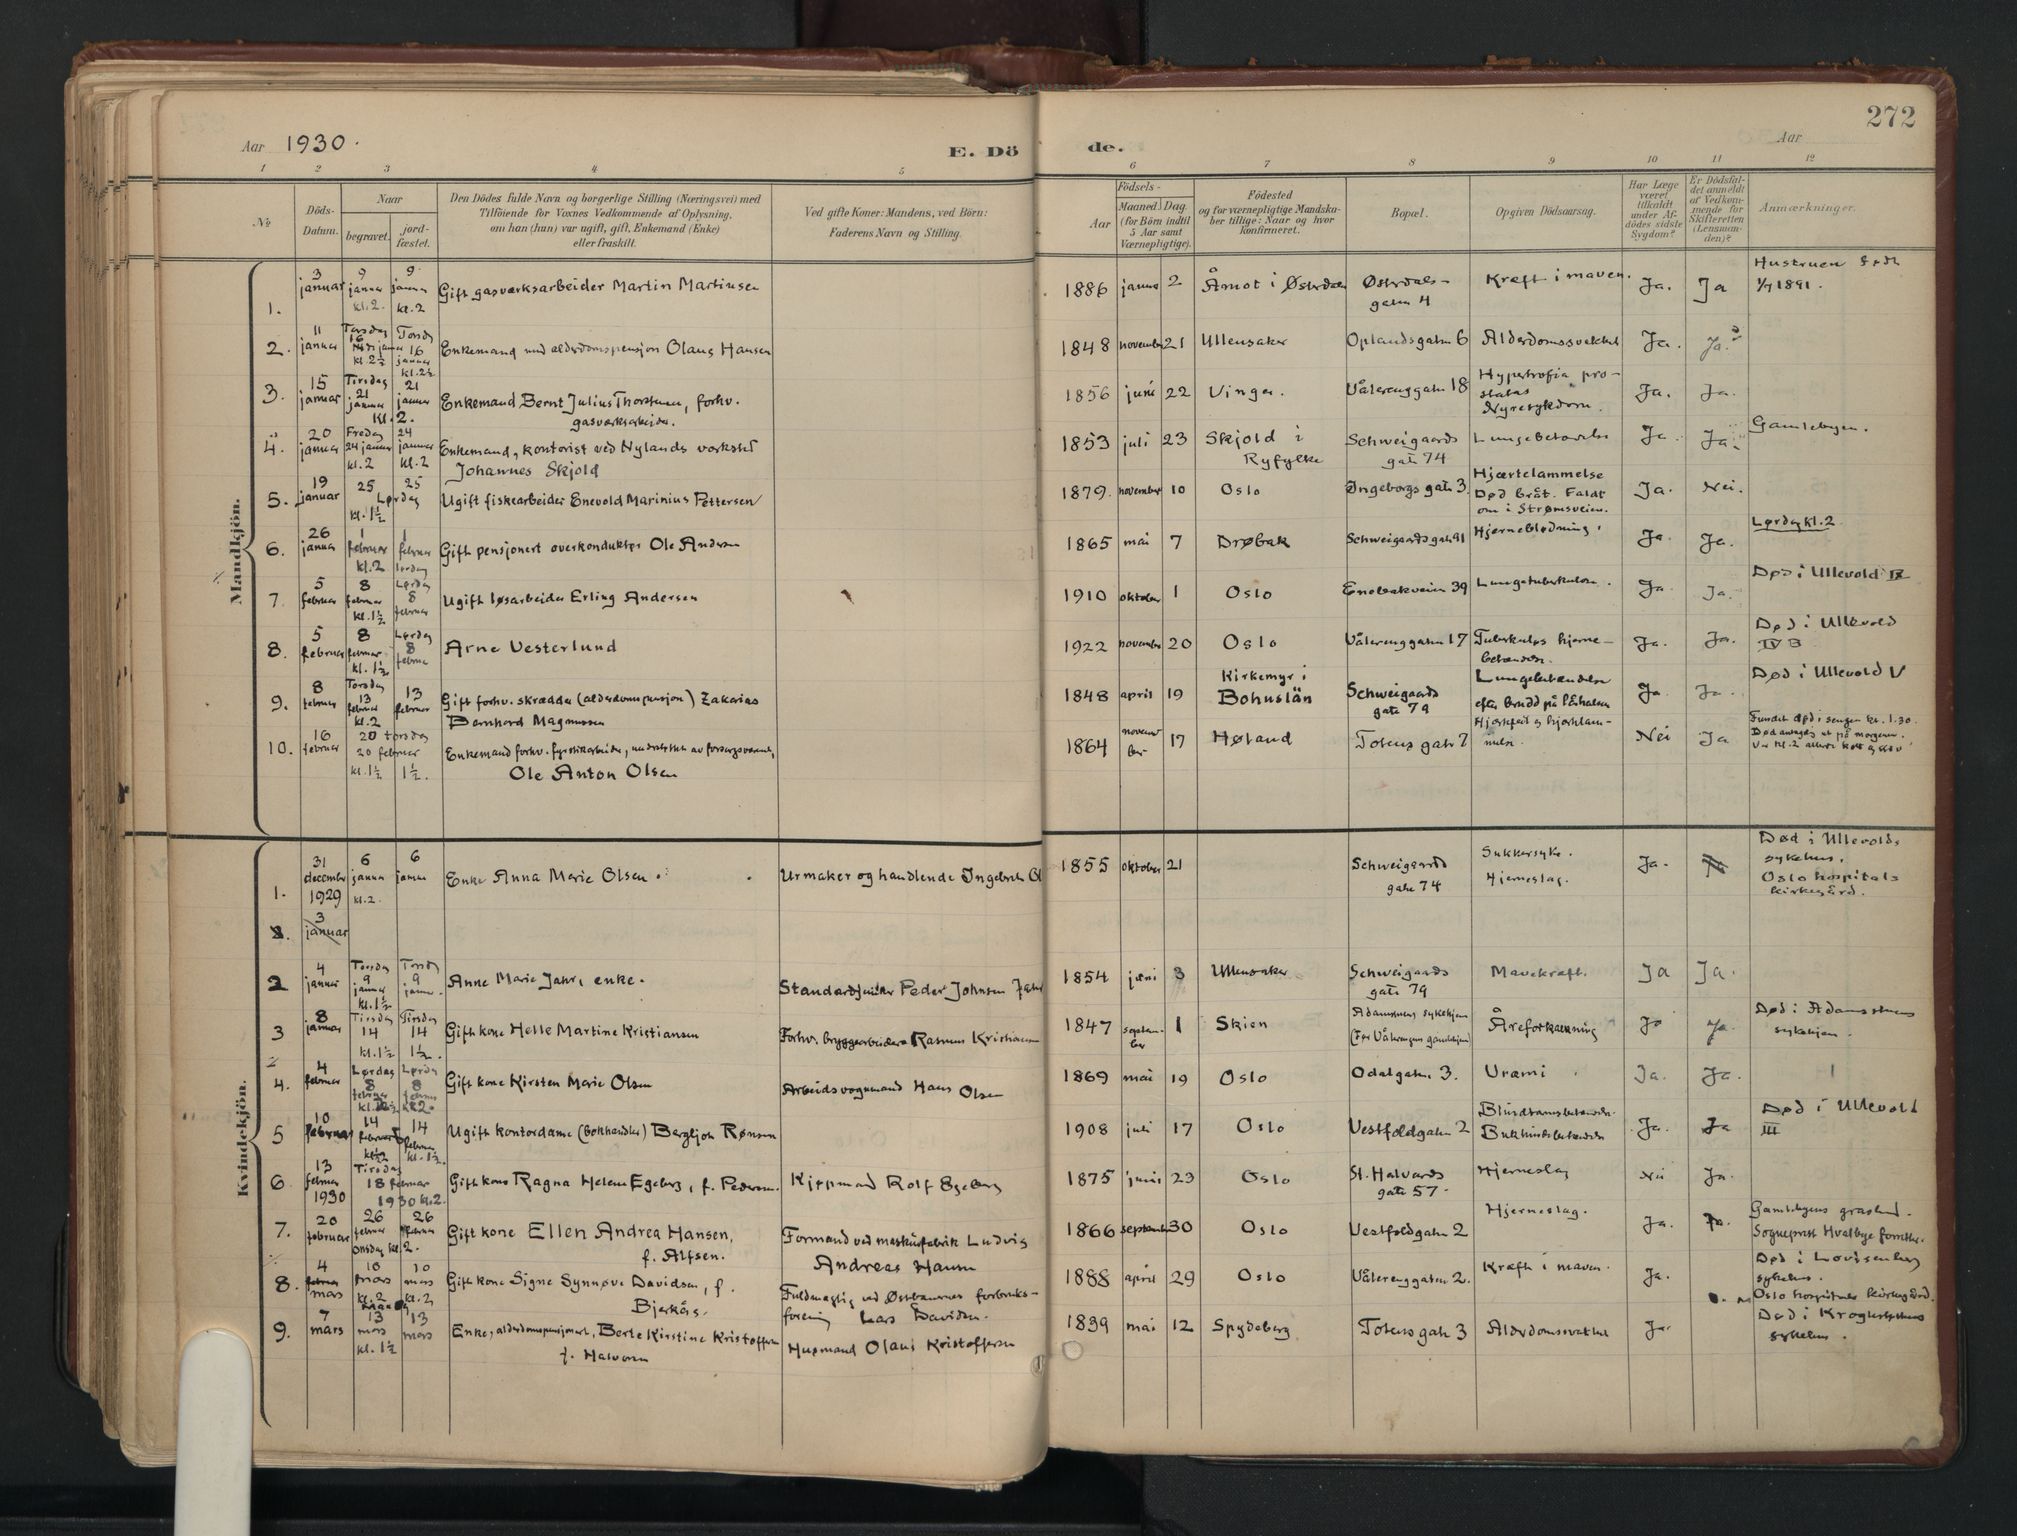 272
Aar 1930.
E. Dö de.
Aar
1 2 3 4 5 6 7 8 9 10 11 12
№
Döds-
Datum.
Naar
begravet.
jord-
fæstet.
Den Dödes fulde Navn og borgerlige Stilling (Næringsvei) med
Tilföiende for Voxnes Vedkommende af Oplysning,
om han (hun) var ugift, gift, Enkemand (Enke)
eller fraskilt.
Ved gifte Koner: Mandens, ved Börn:
Faderens Navn og Stilling.
Födsels-
Aar
Maaned Dag
(for Börn indtil
5 Aar samt
Værnepligtige).
Födested
og for værnepligtige Mandska-
ber tillige: Naar og hvor
konfirmeret.
Bopæl.
Opgiven Dödsaarsag.
Har Læge
været
tilkaldt
under Af-
dödes sidste
Sygdom?
Er Dödsfal-
det anmeldt
af Vedkom-
mende for
Skifteretten
(Lensman-
den)?
Anmærkninger.
Mandkjön.
1. 3 januar 9 januar kl. 2. 9 januar kl. 2 Gift gasværksarbeider Martin Martinsen 1886 januar 2 Åmot i Østerdalen Østerdals-
gaten 4 Kræft i maven. Ja. Ja Hustruen født
1/7 1891.
2. 11 januar Torsdag 16 januar kl. 2½ Torsdag 16 januar kl. 2½ Enkemand med alderdomspensjon Olaus Hansen 1848 november 21 Ullensaker Oplandsgaten 6 Alderdomssvakhet Ja. Ja.
3. 15 januar Tirsdag 21 januar kl. 2. 21 januar Enkemand Bernt Julius Thorstensen, forhv.
gasværksarbeider. 1856 juni 22 Vinger. Vålerenggaten 18 Hypertrofia pro-
statas
Nyresykdom. Ja. Ja.
4. 20 januar Fredag 24 januar kl. 2 24 januar kl. 2 Enkemand, kontorist ved Nylands verksted
Johannes Skjold 1853 juli 23 Skjold i
Ryfylke Schweigaards
gate 74 Lungebetændelse Ja. Ja. Gamlebyen.
5. 19 januar 25 Lørdag kl. 1½ 25 Ugift fiskearbeider Enevold Marinius Pettersen 1879. november 10 Oslo Ingeborgs gate 3. Hjærtelammelse
Død bråt. Faldt
om i Strømsveien. Ja. Nei.
6. 26 januar 1 februar kl. 2 1 februar lørdag Gift pensjonert overkonduktør Ole Andersen 1865 mai 7 Drøbak Schweigaardsgate 91 Hjerneblødning. Ja. Ja. Lørdag kl. 2
7. 5 februar 8 februar kl. 1½ Lørdag 8 februar Ugift løsarbeider Erling Andersen 1910 oktober 1 Oslo Enebakveien 39 Lungetuberkulose. Ja. Ja. Død i Ullevold IX
8. 5 februar 8 februar kl. 1½ Lørdag 8 februar Arne Vesterlund 1922 november 20 Oslo Vålerenggaten 17 Tuberkuløs hjerne-
betændelse. Ja. Ja. Død i Ullevold
IV B
9. 8 februar Torsdag 13 februar kl. 2 13 februar Gift forhv. skrædder (alderdomspensjon) Zakarias
Bernhard Magnussen 1848 april 19 Kirkemyr i
Bohuslän Schweigaards
gate 79 Lungebetændelse
efter brudd på lårhalsen Ja. Ja. Død i Ullevold V
10. 16 februar 20 torsdag 20 februar kl. 1½ 1½. Enkemand forhv. fyrstikarbeider, understøttet av forsorgsvæsenet,
Ole Anton Olsen 1864 november 17 Høland Totens gate 7 Hjertefeil og hjertelam-
melse. Nei Ja Fundet død i sengen kl. 1.30.
Død antagelig ut på morgenen.
Var kl. 2 allerede kold og stiv
Kvindekjön.
1. 31 december 1929 6 januar kl. 2. 6 januar Enke Anna Marie Olsen. Urmaker og handlende Ingebret Ol 1855 oktober 21 Schweigaards
gate 74 Sukkersyke.
Hjerneslag. Ja. Død i Ullevolds
sykehus.
Oslo hospitals
kirkegård.
3 januar
2 4 januar Torsdag 9 januar kl. 1½ Torsdag 9 januar. Anne Marie Jahr, enke. Standardjunker Peder Johnsen Jahr 1854 juni 3 Ullensaker Schweigaards
gate 79 Mavekræft. Ja Ja.
3 8 januar Tirsdag 14 kl. 1½ Tirsdag 14 1½. Gift kone Helle Martine Kristiansen Forhv. bryggearbeider Rasmus Kristiansen 1847 septem-
ber 1 Skien Adamstuens sykehjem
(Før Vålerengens gamlehjem) Åreforkalkning Ja Ja. Død i Adamstuens
sykehjem.
4. 4 februar Lørdag 8 februar Lørdag 8 februar kl. 2. Gift kone Kirsten Marie Olsen Arbeidsvognmand Hans Olsen 1869 mai 19 Oslo Odalgaten 3. Uræmi Ja. Ja.
5 10 februar 14 februar 14 februar kl. 1½. Ugift kontordame (bokhandler) Bergljot Rønsen 1908 juli 17 Oslo Vestfoldgaten 2 Blindtarmsbetændelse.
Bukhindebetændelse Ja. Ja Død i Ullevold
III
6. 13 februar 1930 Tirsdag 18 februar 1930 kl. 2. Gift kone Ragna Helene Egeberg, f. Pedersen. Kjøpmand Rolf Egeberg 1875 juni 23 Oslo St. Halvards
gate 57. Hjerneslag Nei Ja.
7. 20 februar 26 februar onsdag kl. 2. 26 februar Gift kone Ellen Andrea Hansen,
f. Alfsen. Formand ved maskinfabrik Ludvig
Andreas Hansen 1866 september 30 Oslo Vestfoldgaten 2 Hjerneslag. Ja. Ja. Gamlebyens gravlund.
Sogneprest Hvalbye forretter.
8. 4 mars 10 mars kl. 2 10 mars kl. 2 Gift kone Signe Synnøve Davidsen, f.
Bjerkås. Fuldmægtig ved Østbanernes forbruks-
forening Lars Davidsen. 1888 april 29 Oslo Vålerenggaten 2. Kræft i maven. Ja. Død i Lovisenberg
sykehus.
Oslo hospitals kirkegård.
9. 7 mars 13 mars kl. 1½ 13 mars Enke, alderdomspensjonert, Berte Kirstine Kristoffersen
f. Halvorsen Husmand Olaus Kristoffersen 1839 mai 12 Spydeberg Totens gate 3 Alderdomssvakhet Ja. Død i Krogstøttens
sykehus.